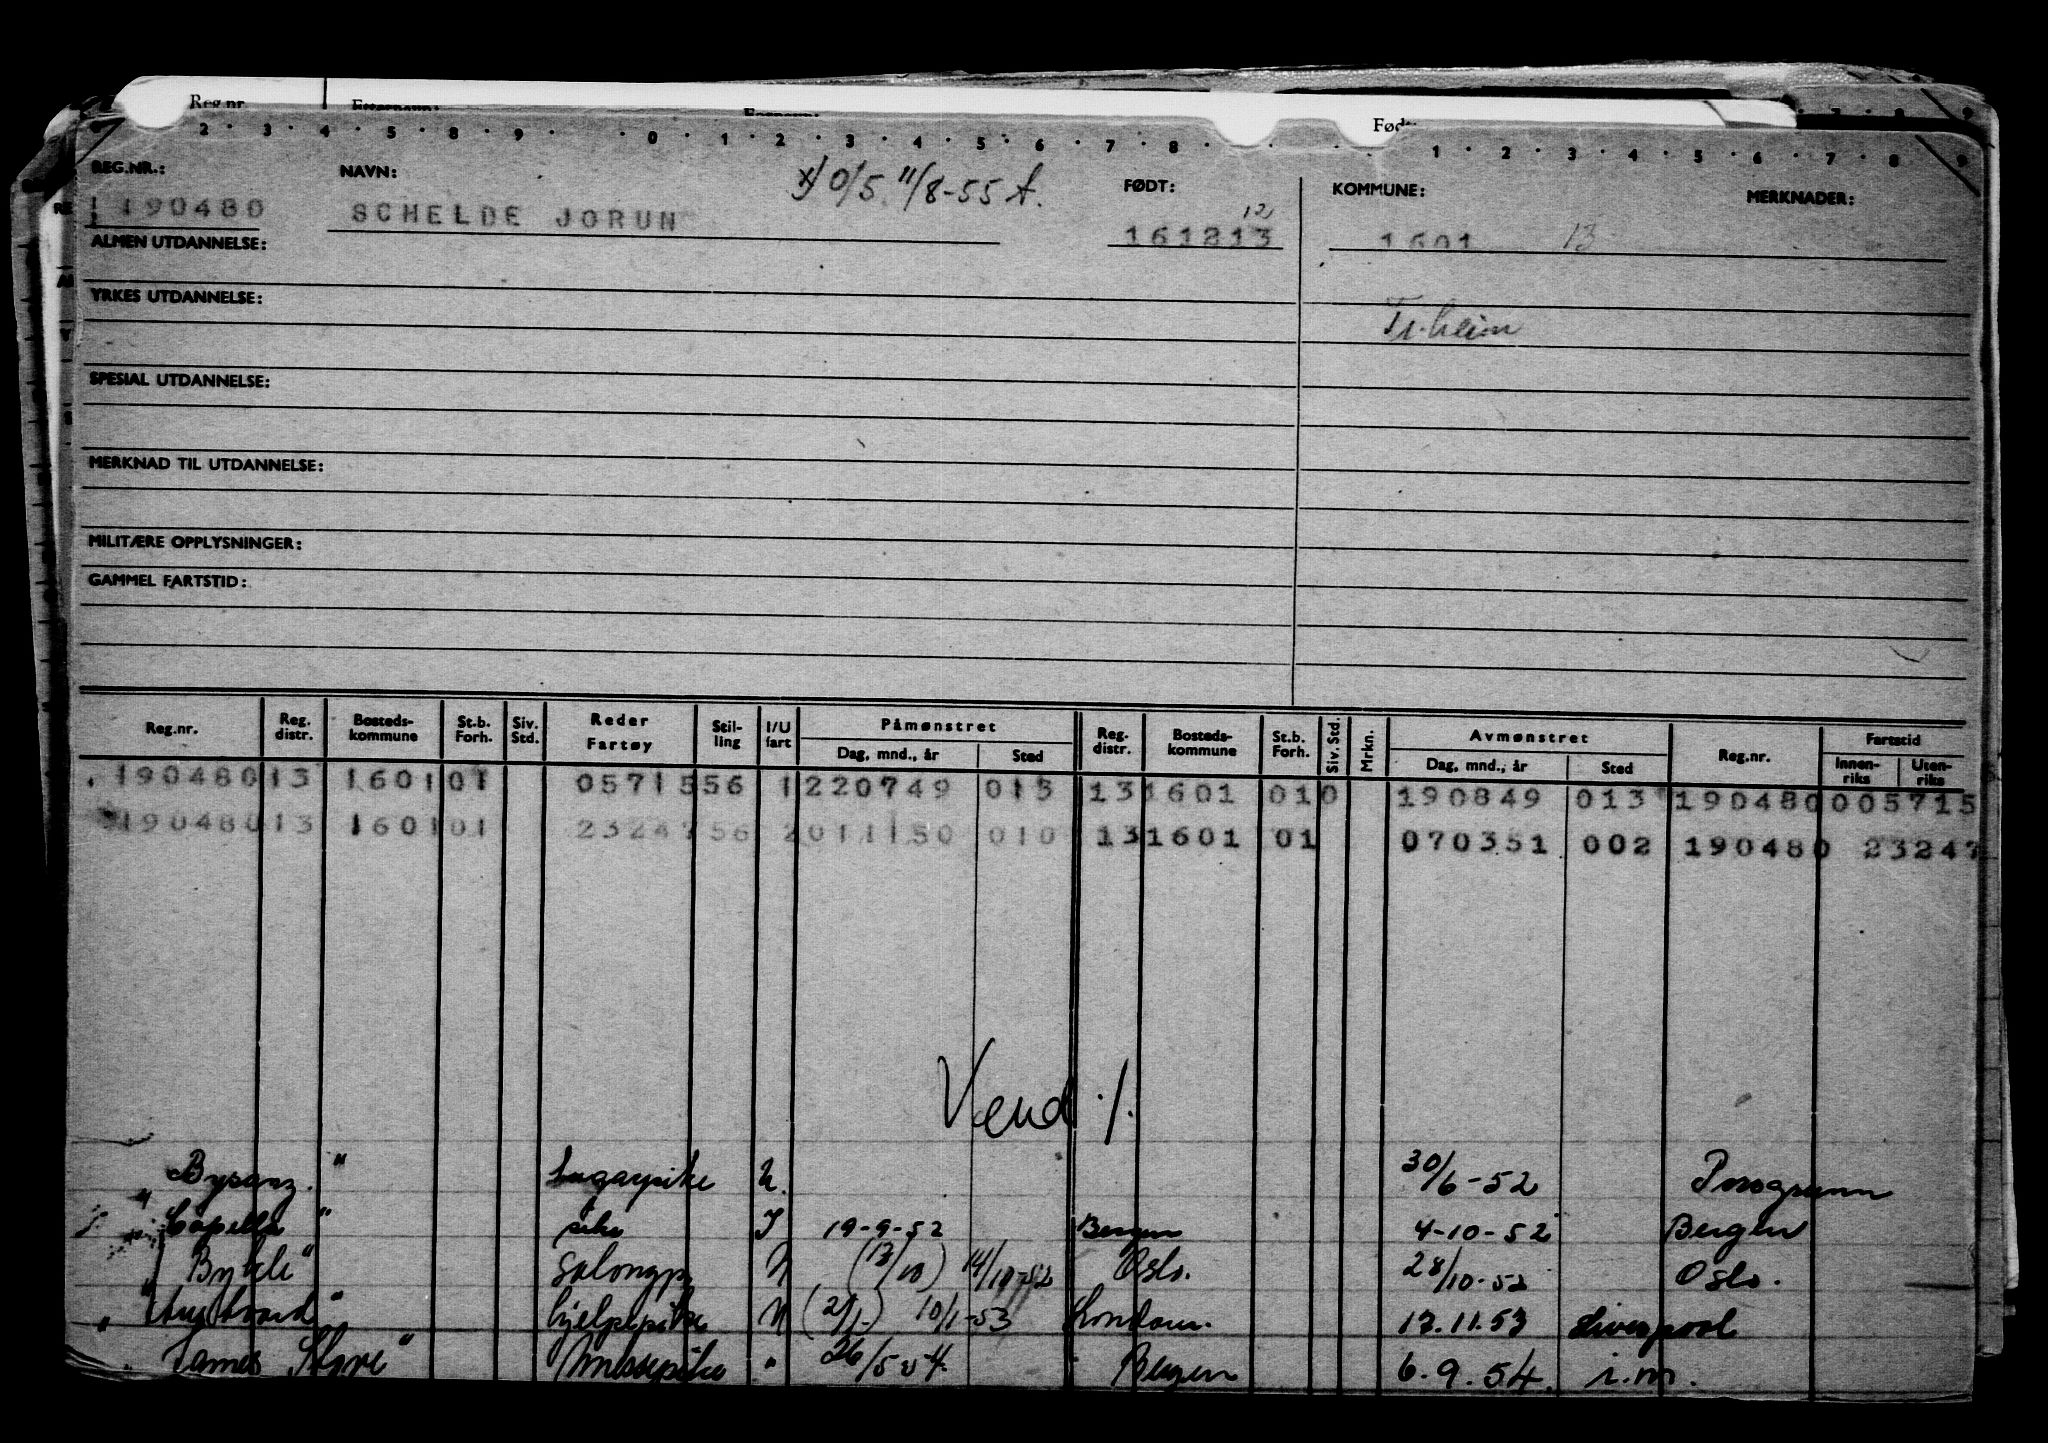 Reg.nr. Etternavn: Fornavn: Født:
2 · 3 · 4 · 5 · 8 · 9 · 0 · 1 · 2 · 3 · 4 · 5 · 6 · 7 · 8 · 1 · 2 · 3 · 4 · 5 · 6 · 7 · 8 · 9
REG.NR.: NAVN: x) 0/5 11/8-55 A. FØDT: KOMMUNE: MERKNADER:
190480 SCHELDE JORUN 161213 12 1601 13
ALMEN UTDANNELSE:
YRKES UTDANNELSE: Tr.heim
SPESIAL UTDANNELSE:
MERKNAD TIL UTDANNELSE:
MILITÆRE OPPLYSNINGER:
GAMMEL FARTSTID:
Reg.nr. Reg. distr. Bosteds-kommune St.b. Forh. Siv. Std. Reder Fartøy Stil-ling I/U fart Påmønstret Dag, mnd., år Sted Reg. distr. Bosteds-kommune St.b. Forh. Siv. Std. Mrkn. Avmønstret Dag, mnd., år Sted Reg.nr. Fartstid Innen-riks Uten-riks
190480 13 1601 01 05715 56 1 220749 013 13 1601 01 0 190849 013 190480 005715
190480 13 1601 01 23247 56 2 011150 010 13 1601 01 070351 002 190480 23247
Vend ./.
Bysanz " lugarpike U. 30/6-52 Porsgrunn
" Capella " pike I 19-9-52 Bergen 4-10-52 Bergen
Bykle " salongp U (13/10) 14/10-52 Oslo. 28/10-52 Oslo.
" " hjelpepike U (2/1-) 10/1-53 London. 13.11.53 Liverpool
" James Stove " Messepike " 26/5-54. Bergen 6.9.54. i.m.